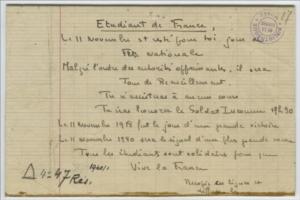 Etudiant de France,
Le 11 Novembre est resté pour toi jour de
Fête Nationale
Malgré l'ordre des autorités opprimantes, il sera
Jour de Recueillement.
Tu n'assisteras à aucun cours
Tu iras honorer le Soldat Inconnu 17h30
Le 11 Novembre 1918 fut le jour d'une grande victoire
Le 11 novembre 1940 sera le signal d'une plus grande encore
Tous les étudiants sont solidaires pour que
Vive la France
Recopie ces lignes et
diffuse les